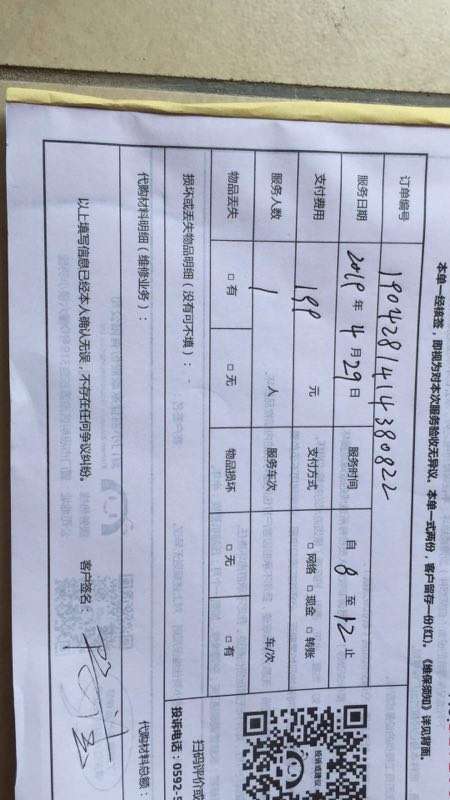 本单一经接签，即视为对本次服务验收无异议。本单一式两份，客户留存一份(红)。《维保须知》详见背面。
订单编号 1904281414380822
服务日期 2019 年 4 月 29 日 服务时间 自 8 至 12 止
支付费用 199 元 支付方式 □ 网络 □ 现金 □ 转账
服务人数 1 人 服务车次 车/次
物品丢失 □ 有 □ 无 物品损坏 □ 无 □ 有
损坏或丢失物品明细（没有可不填）：
代购材料明细（维修业务）： 代购材料总额：
以上填写信息已经本人确认无误，不存在任何争议纠纷。 客户签名：
投诉或建议
扫码评价或
投诉电话：0592-5